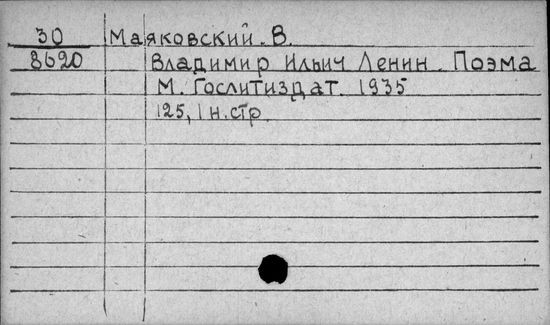 30 Маяковский. В.
8620 Владимир Ильич Ленин. Поэма
М. Гослитиздат. 1935
125, 1 н. стр.